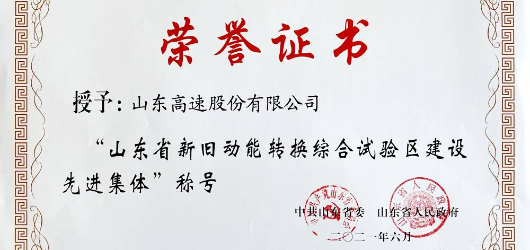 荣誉证书
授予：山东高速股份有限公司
“山东省新旧动能转换综合试验区建设
先进集体”称号
中共山东省委 山东省人民政府
二〇二一年六月